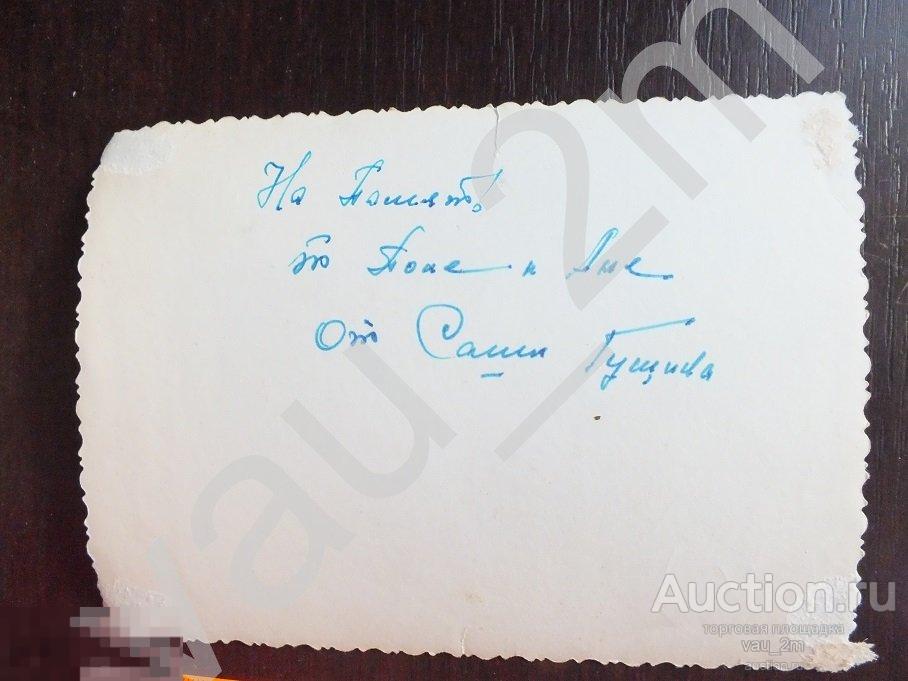 На Память
Поле и Ане
От Саши Гущина
vau_2m
Auction.ru
торговая площадка
vau_2m
auction.ru